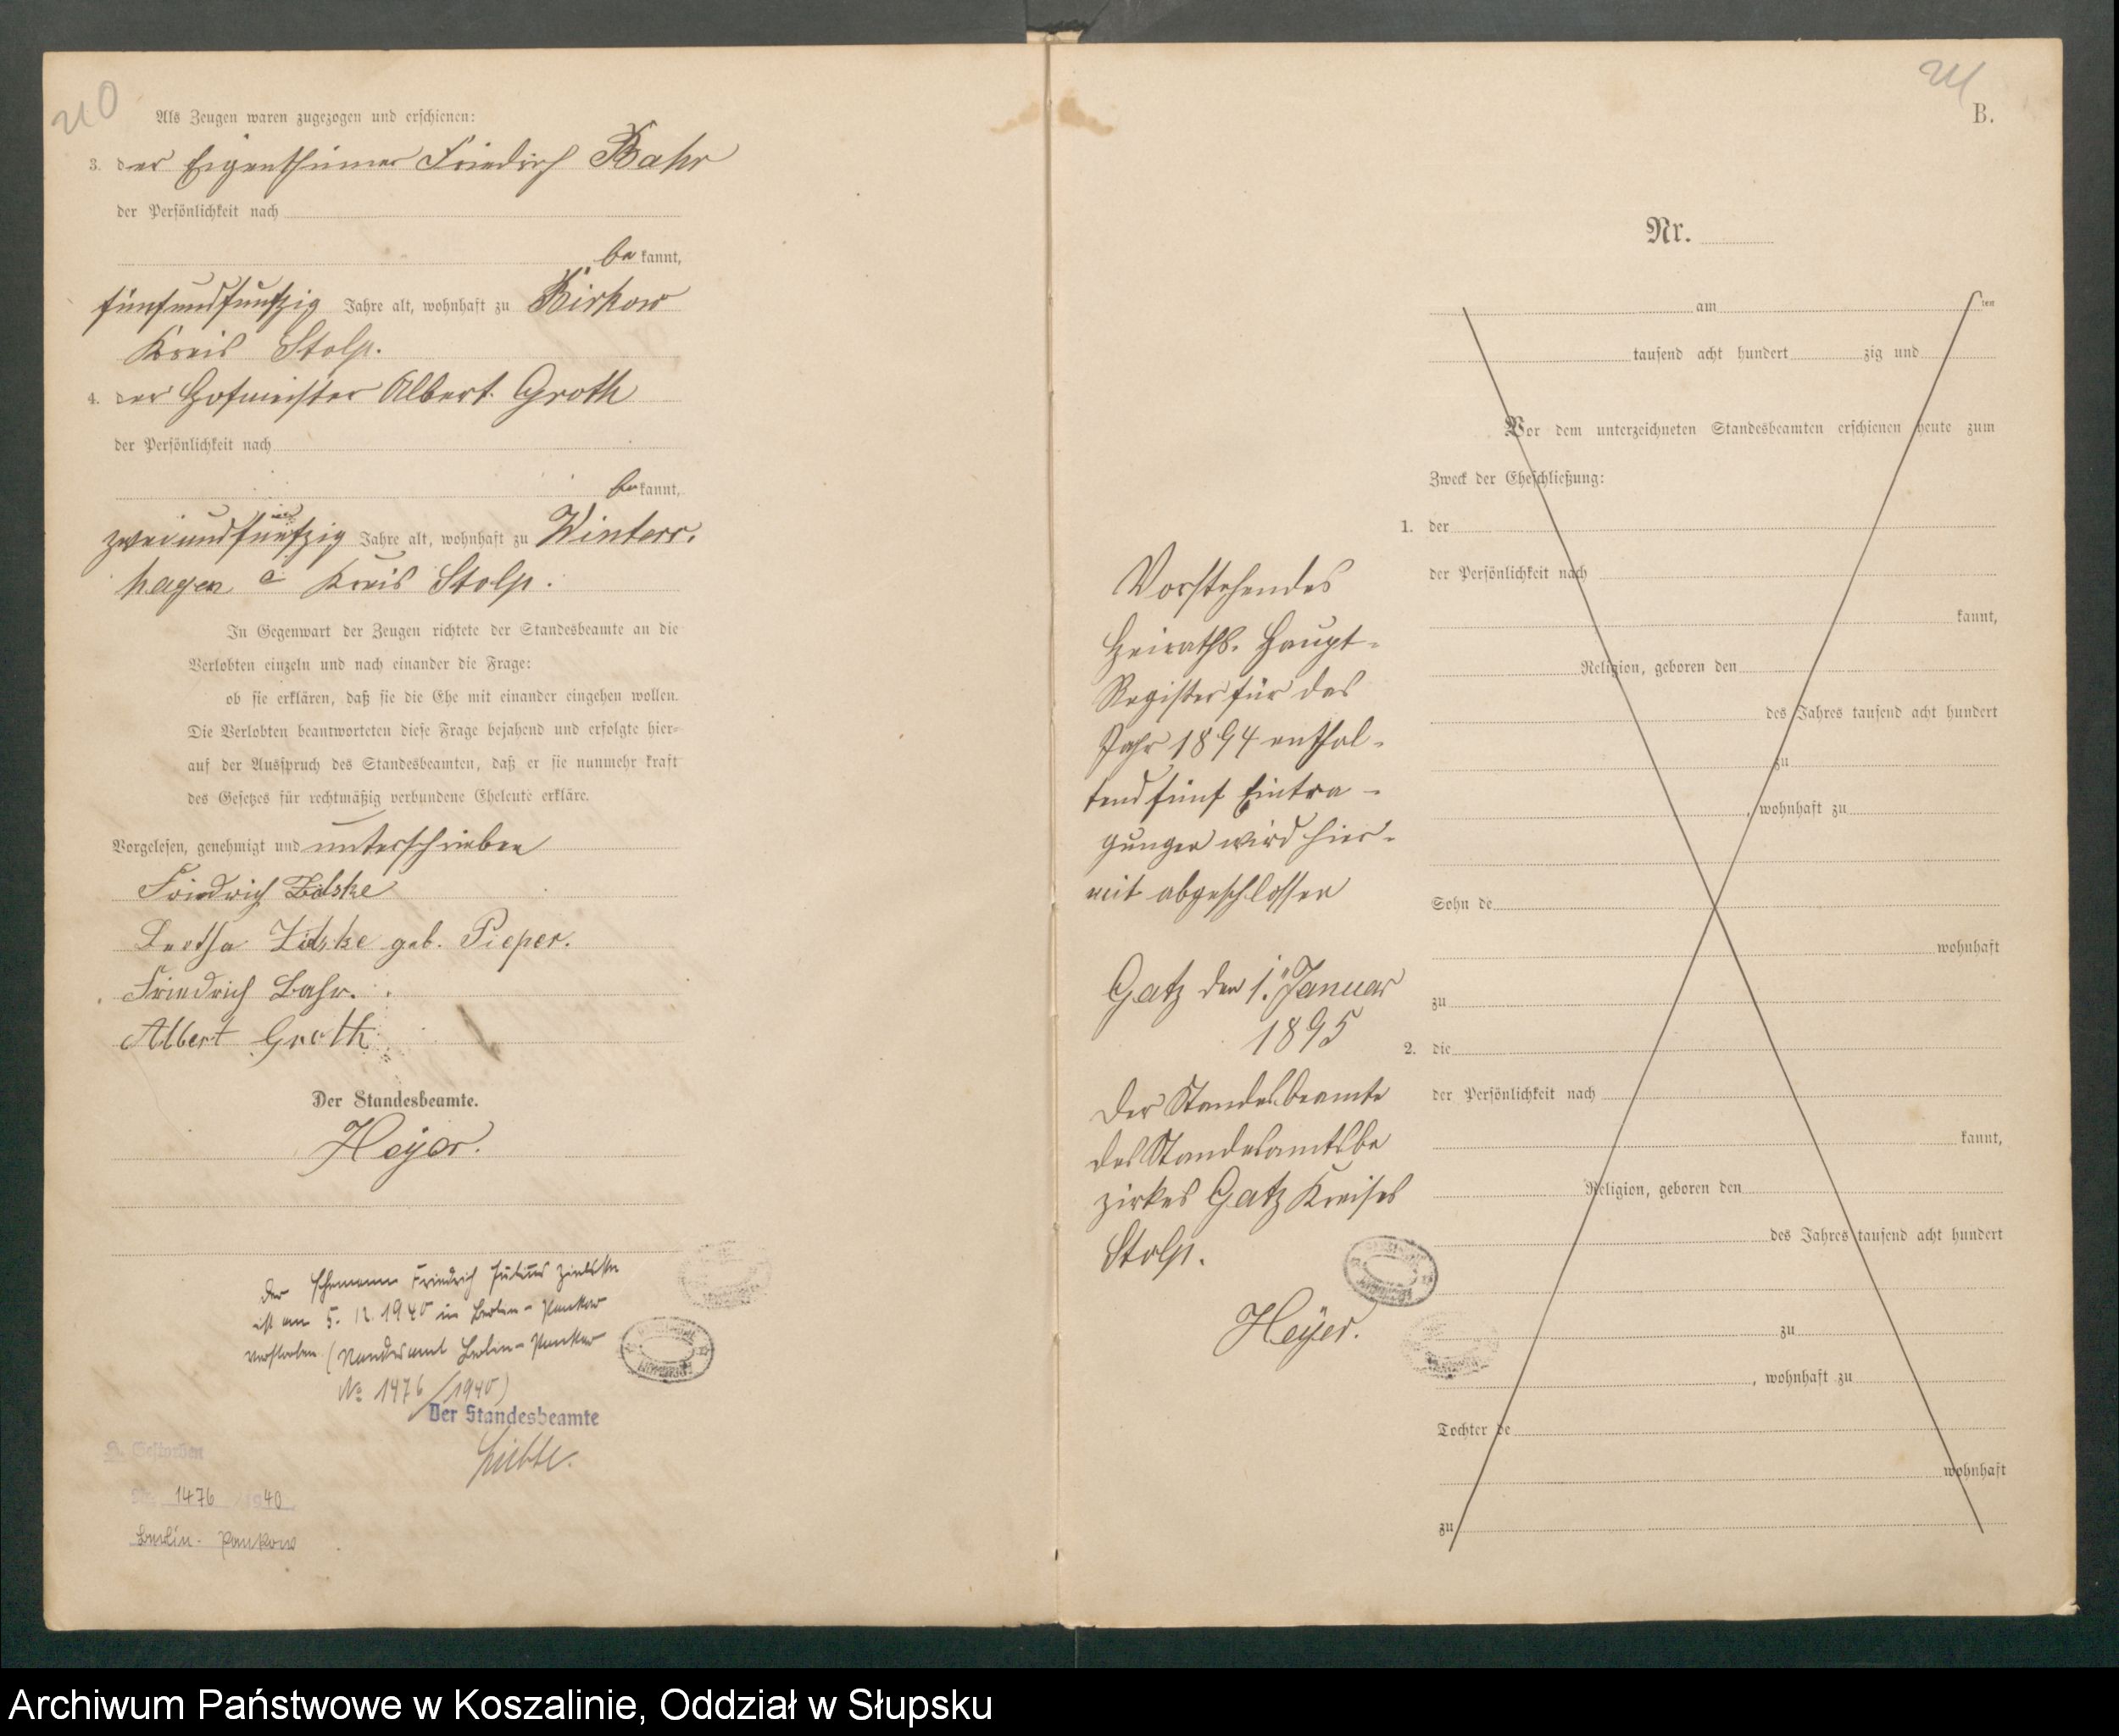 210
Als Zeugen waren zugezogen und erschienen:
3. der Eigenthümer Friedrich Bahr
der Persönlichkeit nach
be kannt,
fünfundfünfzig Jahre alt, wohnhaft zu Birkow
Kreis Stolp.
4. der Hofmeister Albert Groth
der Persönlichkeit nach
be kannt,
zweiundfünfzig Jahre alt, wohnhaft zu Winters-
hagen Kreis Stolp.
In Gegenwart der Zeugen richtete der Standesbeamte an die
Verlobten einzeln und nach einander die Frage:
ob sie erklären, daß sie die Ehe mit einander eingehen wollen.
Die Verlobten beantworteten diese Frage bejahend und erfolgte hier-
auf der Ausspruch des Standesbeamten, daß er sie nunmehr kraft
des Gesetzes für rechtmäßig verbundene Eheleute erkläre.
Vorgelesen, genehmigt und unterschrieben
Friedrich
geb. Pieper.
Friedrich Bahr.
Albert Groth
Der Standesbeamte.
Heyer.
Der Ehemann Friedrich Julius
ist am 5. 12. 1940 in Berlin-Pankow
verstorben (Standesamt Berlin-Pankow
No 1476/1940)
Der Standesbeamte
Gestorben
Nr. 1476 / 1940
Berlin-Pankow
211
B.
Vorstehendes
Heiraths-Haupt-
Register für das
Jahr 1894 enthal-
tend fünf Eintra-
gungen wird hier-
mit abgeschlossen
Gatz den 1. Januar
1895
Der Standesbeamte
des Standesamtsbe
zirkes Gatz Kreises
Stolp.
Heyer.
Nr.
am ten
tausend acht hundert zig und
Vor dem unterzeichneten Standesbeamten erschienen heute zum
Zweck der Eheschließung:
1. der
der Persönlichkeit nach
kannt,
Religion, geboren den
des Jahres tausend acht hundert
zu
, wohnhaft zu
Sohn de
wohnhaft
zu
2. die
der Persönlichkeit nach
kannt,
Religion, geboren den
des Jahres tausend acht hundert
zu
, wohnhaft zu
Tochter de
wohnhaft
zu
Archiwum Państwowe w Koszalinie, Oddział w Słupsku